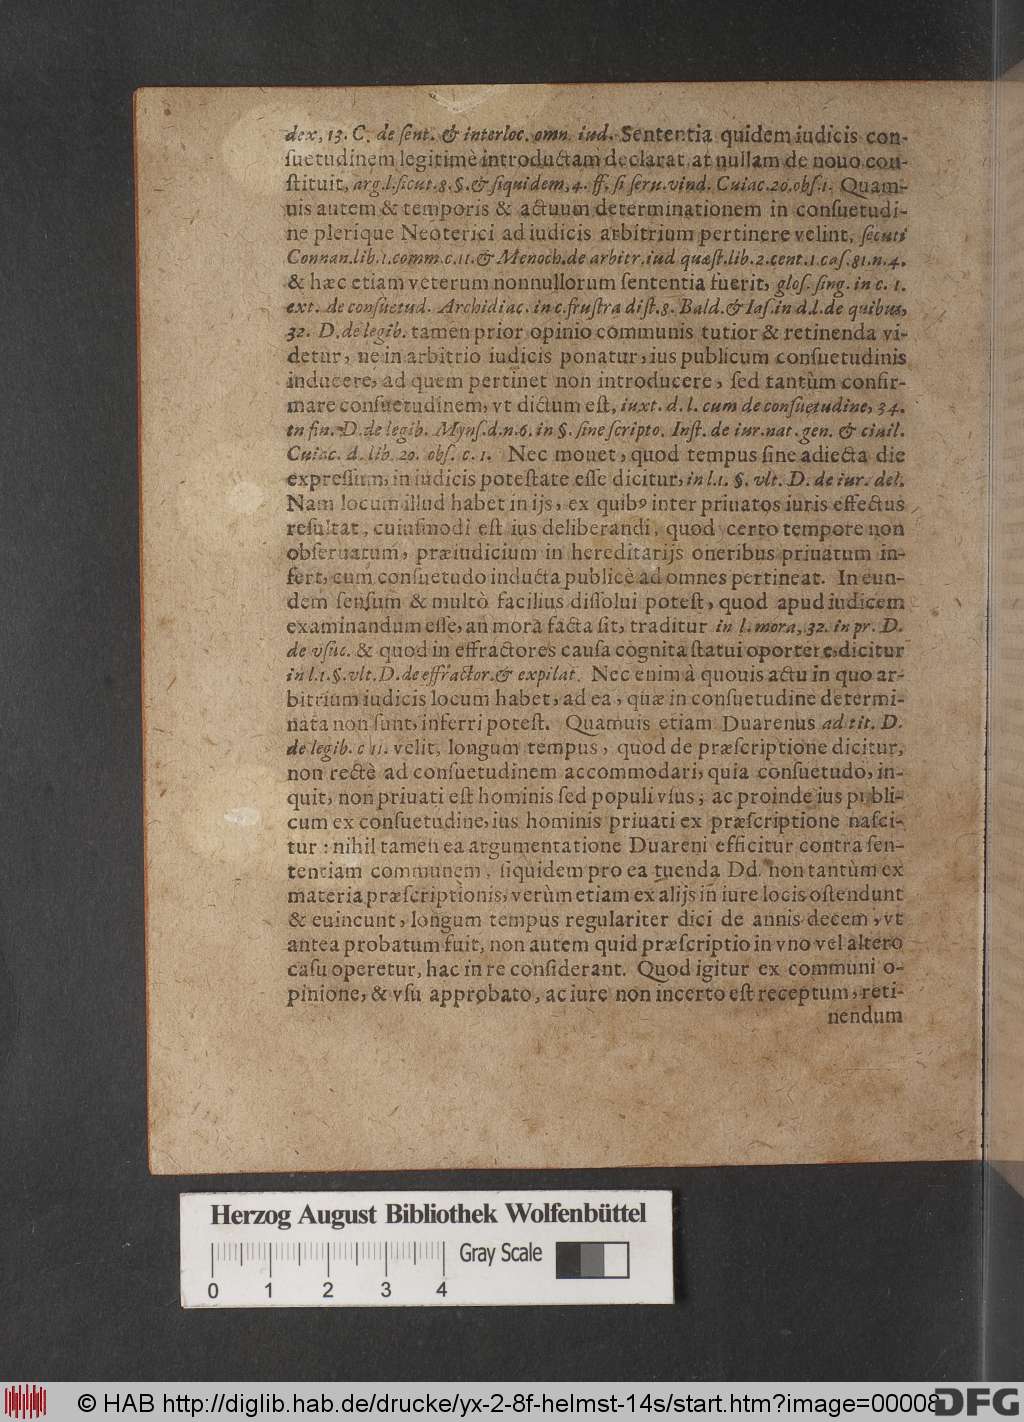 dex, 13. C. de ſent. & interloc. omn. iud. Sententia quidem iudicis con-
ſuetudinem legitimè introductam declarat at nullam de nouo con-
ſtituit, arg. l. ſicut. 8. §. & ſiquidem, 4. ff. ſi ſeru. vind. Cuiac. 20. obſ. 1. Quam-
uis autem & temporis & actuum determinationem in conſuetudi-
ne plerique Neoterici ad iudicis arbitrium pertinere velint, ſecuti
Connan. lib. 1. comm. c. 11. & Menoch. de arbitr. iud quæſt. lib. 2. cent. 1. caſ. 81. n. 4.
& hæc etiam veterum nonnullorum ſententia fuerit, gloſ. ſing. in c. 1.
ext. de conſuetud. Archidiac. in c. fruſtra diſt. 8. Bald. & Iaſ. in d. l. de quibus,
32. D. de legib. tamen prior opinio communis tutior & retinenda vi-
detur, ne in arbitrio iudicis ponatur, ius publicum conſuetudinis
inducere, ad quem pertinet non introducere, ſed tantùm confir-
mare conſuetudinem, vt dictum eſt, iuxt. d. l. cum de conſuetudine, 34.
in fin. D. de legib. Mynſ. d. n. 6. in §. ſine ſcripto. Inſt. de iur. nat. gen. & ciuil.
Cuiac. d. lib. 20. obſ. c. 1. Nec mouet, quod tempus ſine adiecta die
expreſſum, in iudicis poteſtate eſſe dicitur, in l. 1. §. vlt. D. de iur. del.
Nam locum illud habet in ijs, ex quibꝰ inter priuatos iuris effectus
reſultat, cuiuſmodi eſt ius deliberandi, quod certo tempore non
obſeruatum, præiudicium in hereditarijs oneribus priuatum in-
fert, cum conſuetudo inducta publicè ad omnes pertineat. In eun-
dem ſenſum & multò facilius diſſolui poteſt, quod apud iudicem
examinandum eſſe, an mora facta ſit, traditur in l. mora, 32. in pr. D.
de vſuc. & quod in effractores cauſa cognita ſtatui oportere, dicitur
in l. 1. §. vlt. D. de effractor. & expilat. Nec enim à quouis actu in quo ar-
bitrium iudicis locum habet, ad ea, quæ in conſuetudine determi-
nata non ſunt, inferri poteſt. Quamuis etiam Duarenus ad tit. D.
de legib. c 11. velit, longum tempus, quod de præſcriptione dicitur,
non rectè ad conſuetudinem accommodari, quia conſuetudo, in-
quit, non priuati eſt hominis ſed populi vſus; ac proinde ius publi-
cum ex conſuetudine, ius hominis priuati ex præſcriptione naſci-
tur : nihil tamen ea argumentatione Duareni efficitur contra ſen-
tentiam communem, ſiquidem pro ea tuenda Dd. non tantùm ex
materia præſcriptionis, verùm etiam ex alijs in iure locis oſtendunt
& euincunt, longum tempus regulariter dici de annis decem, vt
antea probatum fuit, non autem quid præſcriptio in vno vel altero
caſu operetur, hac in re conſiderant. Quod igitur ex communi o-
pinione, & vſu approbato, ac iure non incerto eſt receptum, reti-
nendum
Herzog August Bibliothek Wolfenbüttel
Gray Scale
0 1 2 3 4
© HAB http://diglib.hab.de/drucke/yx-2-8f-helmst-14s/start.htm?image=00008
DFG